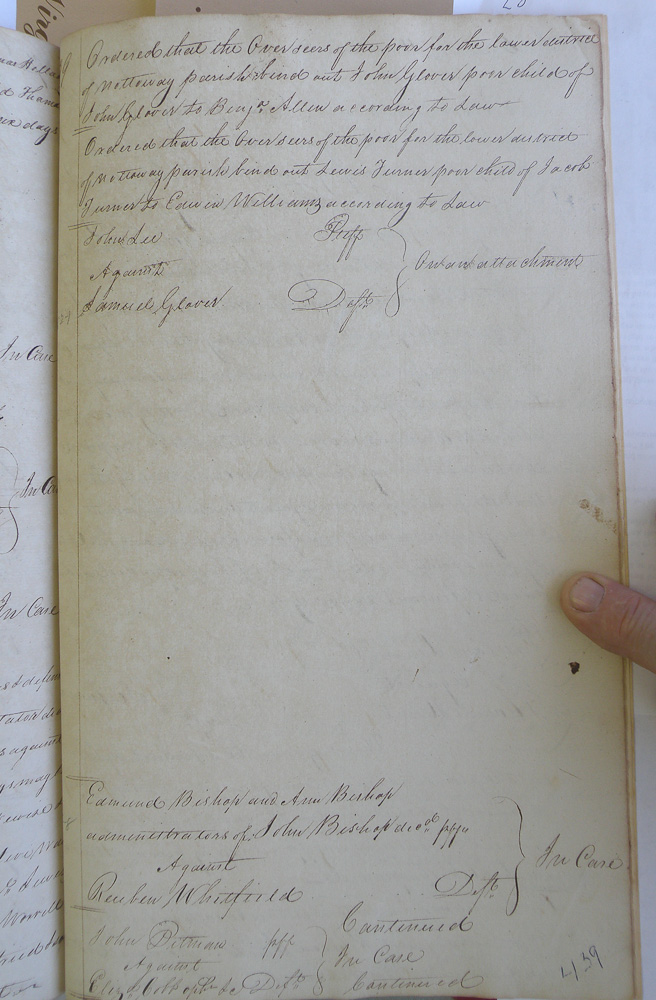 Ordered that the Overseers of the poor for the lower district
of Nottoway parish bind out John Glover poor child of
John Glover to Benj.ⁿ Allen according to Law
Ordered that the Overseers of the poor for the lower district
of Nottoway parish bind out Lewis Turner poor child of Jacob
Turner to Edwin Williams according to Law
John Lee Pltff
Against On an attachment
Samuel Glover Deft
In Case
In Ca
In Case
Edmund Bishop and Ann Bishop
administrators of John Bishop decd
Against In Case
Reuben Whitfield Deft
Continued
John Pittman
Against In Case
Deft Continued
439